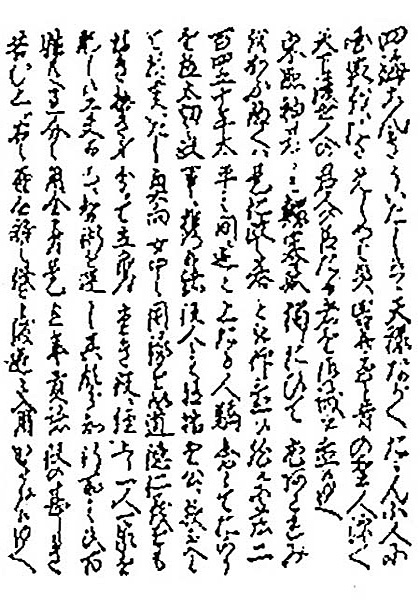 四海こんきういたし候ハヽ天禄ながくたゝん小人に
国家をおさめしめば災害并至と昔の聖人深く
天下後世人の君人の臣たる者を御誡被置候ゆへ
東照神君ニも鰥寡孤独におひて尤あわれみ
を加ふへくは是仁政之基と被仰置候然ルに茲二
百四五十年太平之間ニ追々上たる人驕奢とておこり
を極太切之政事ニ携候諸役人とも賄賂を公ニ授受
とて贈貰いたし奥向女中之因縁を以道徳仁義をも
なき拙き身分ニて立身重き役ニ経上り一人一家を
肥し候工夫而已ニ智術を運し其領分知行所之民百
姓共へ過分之用金申付是迄年貢諸役の甚しき
苦む上江右之通無躰之儀を申渡追々入用かさみ候ゆへ